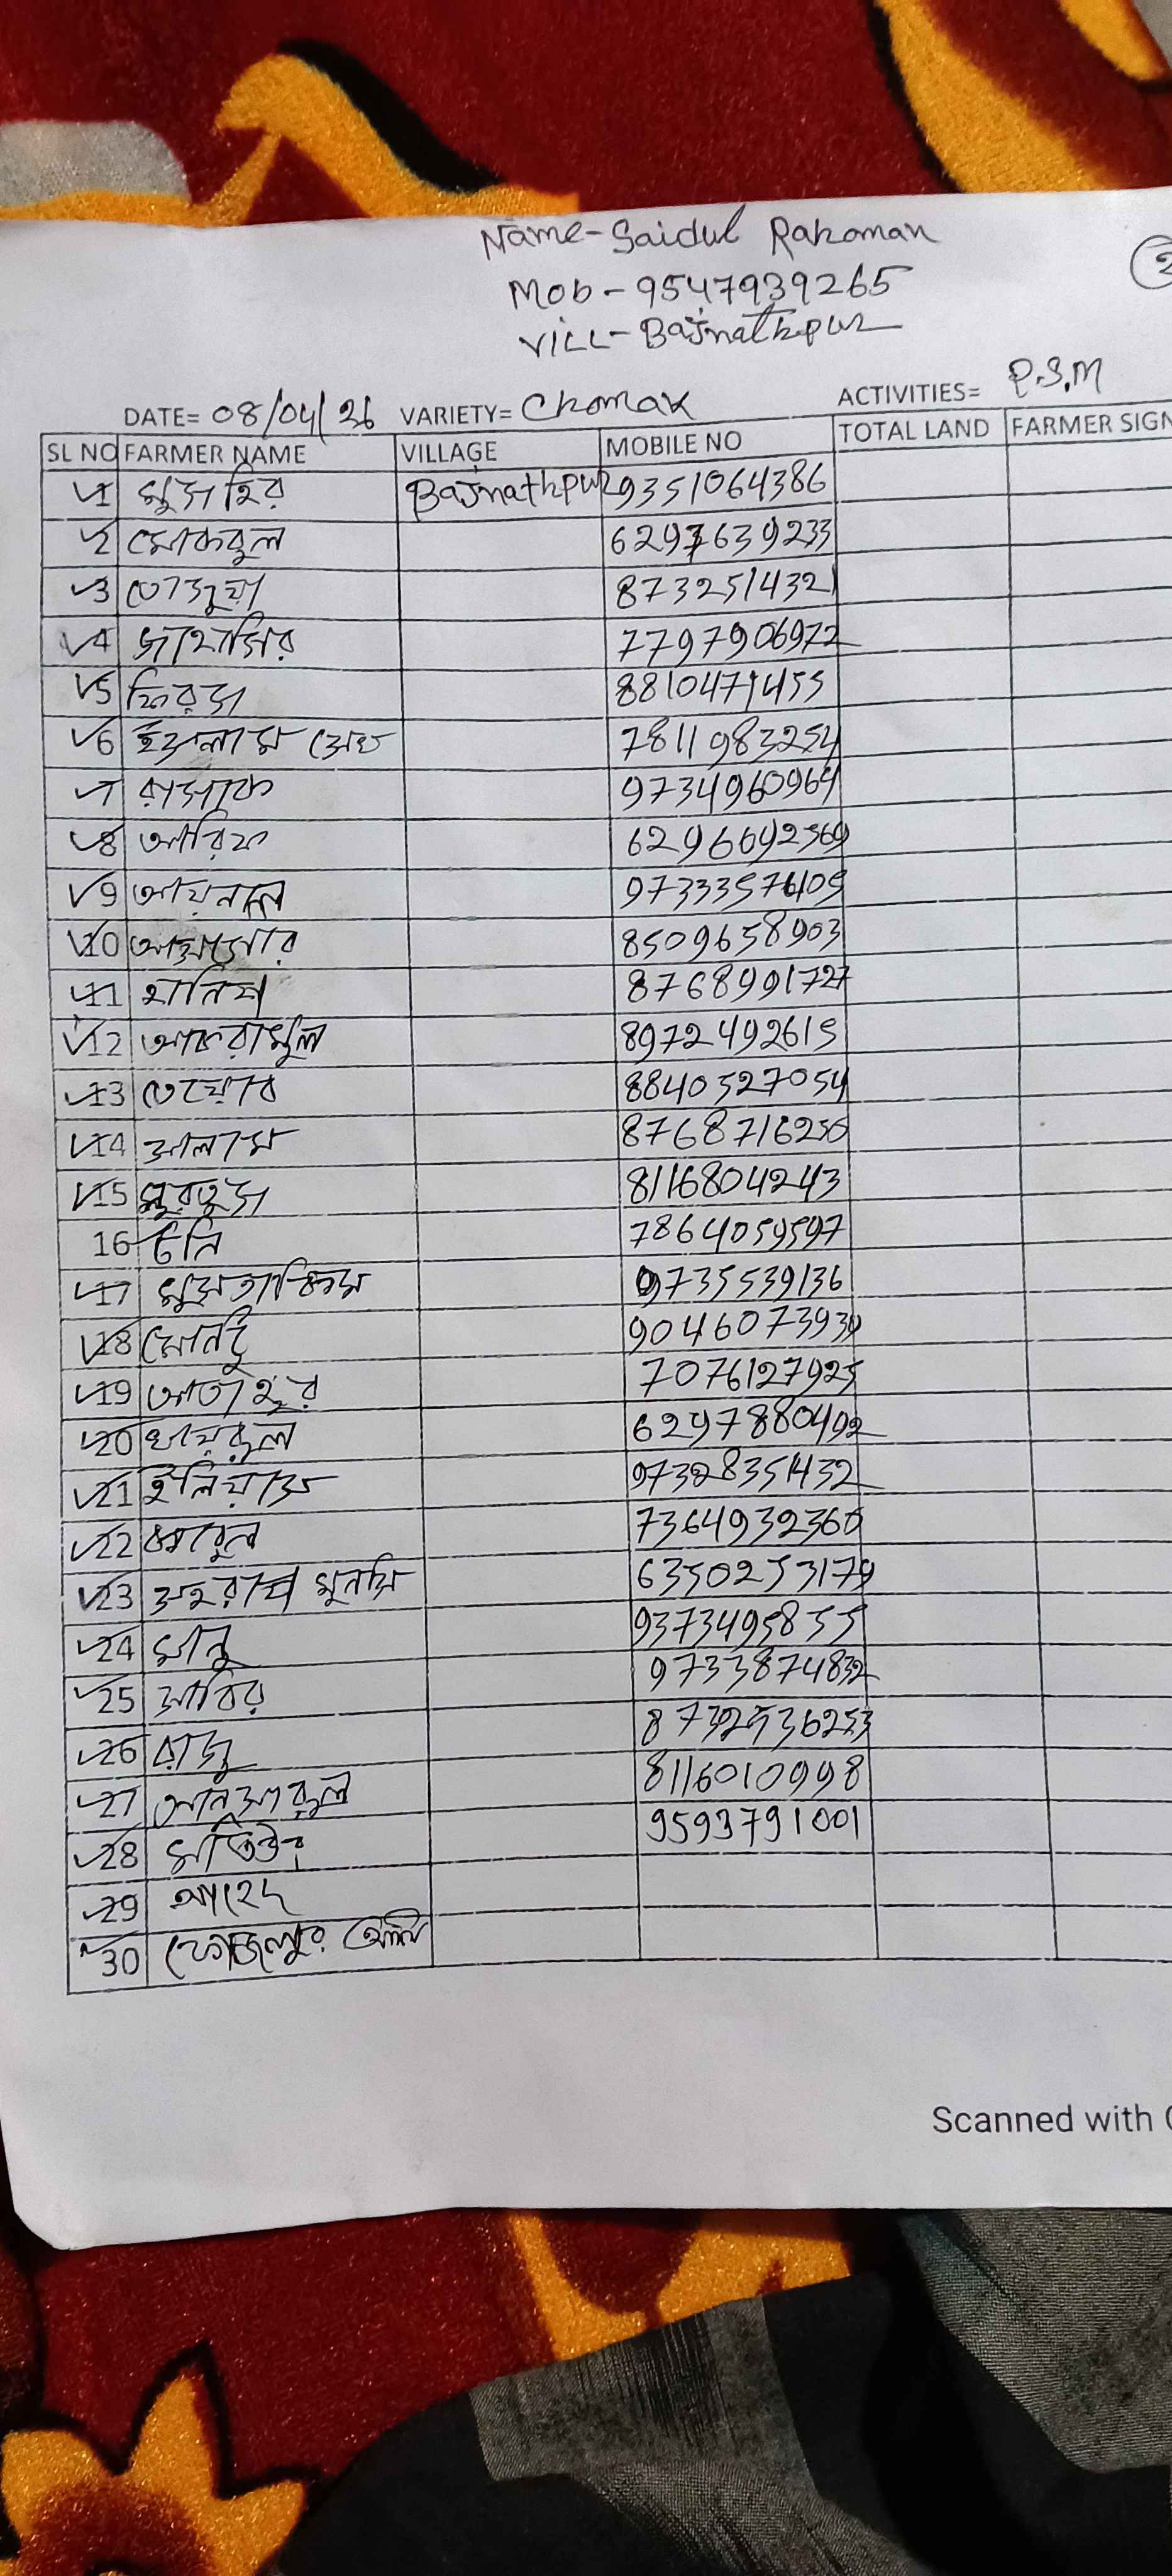 Name-Saidul Rahaman
2
Mob-9547939265
VILL-Bajnathpur
DATE= 08/04/26 VARIETY= Chomak ACTIVITIES= P.S.M
SL NO FARMER NAME VILLAGE MOBILE NO TOTAL LAND FARMER SIGN
1 মুজাহির Bajnathpur 9351064386
2 মোকবুল 6297639233
3 8732514321
4 জাহাঙ্গির 7797906972
5 ফিরজ 8810471455
6 ইসলাম সেখ 7811983254
7 রাজ্জাক 9734960964
8 আরিফ 6296692569
9 আয়নাল 9733357609
10 8509658903
11 হানিফ 8768991727
12 আকরামুল 8972492615
13 তেয়েব 8840527054
14 সালাম 8768716250
15 মুরতুজ 8116804243
16 টনি 7864059597
17 মুসতাকিম 9735539136
18 মোনটু 9046073939
19 আতাহুর 7076127925
20 খায়রুল 6297880492
21 ইলিয়াস 9732835432
22 কাবুল 7364932360
23 সহরাব মুনসি 6350253179
24 মানু 9373495855
25 সাবির 9733874832
26 রাজু 8732536253
27 আনসারুল 8116010998
28 মতিউর 9593791001
29 আহেদ
30 ফোজলুর আলি
Scanned with